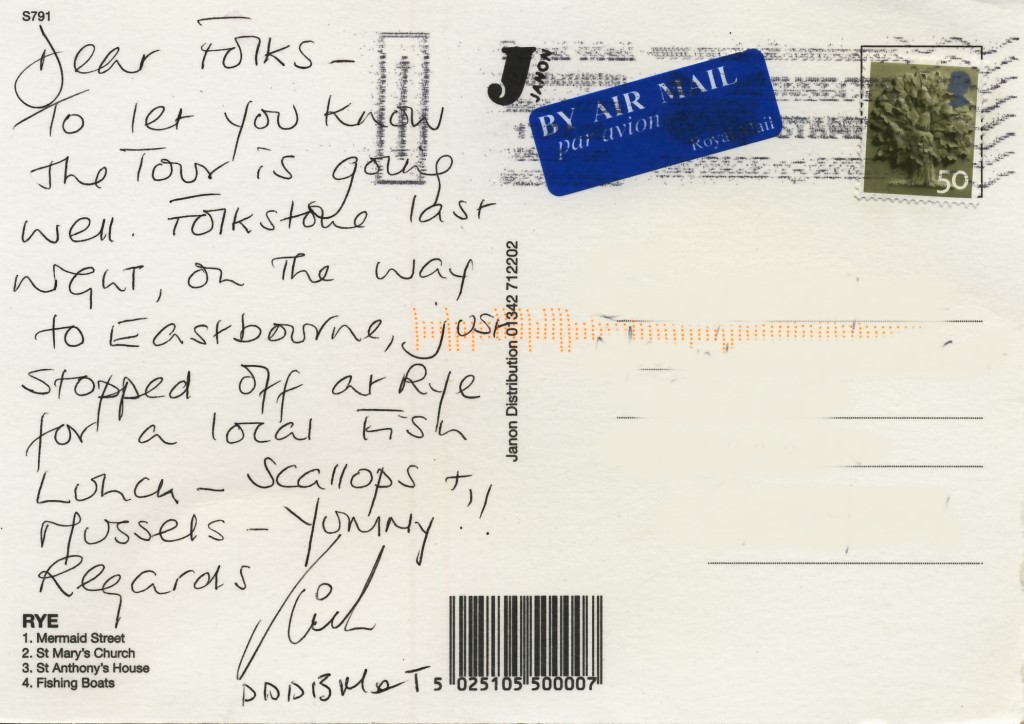 S791
Dear Folks -
To let you know
the Tour is going
well. Folkstone last
night, on the way
to Eastbourne, just
stopped off at Rye
for a local Fish
Lunch - Scallops +
Mussels - Yummy!!
Regards
Nick
DDDBM&T
RYE
1. Mermaid Street
2. St Mary's Church
3. St Anthony's House
4. Fishing Boats
J
JANON
BY AIR MAIL
par avion
Royal Mail
50
Janon Distribution 01342 712202
5 025105 500007